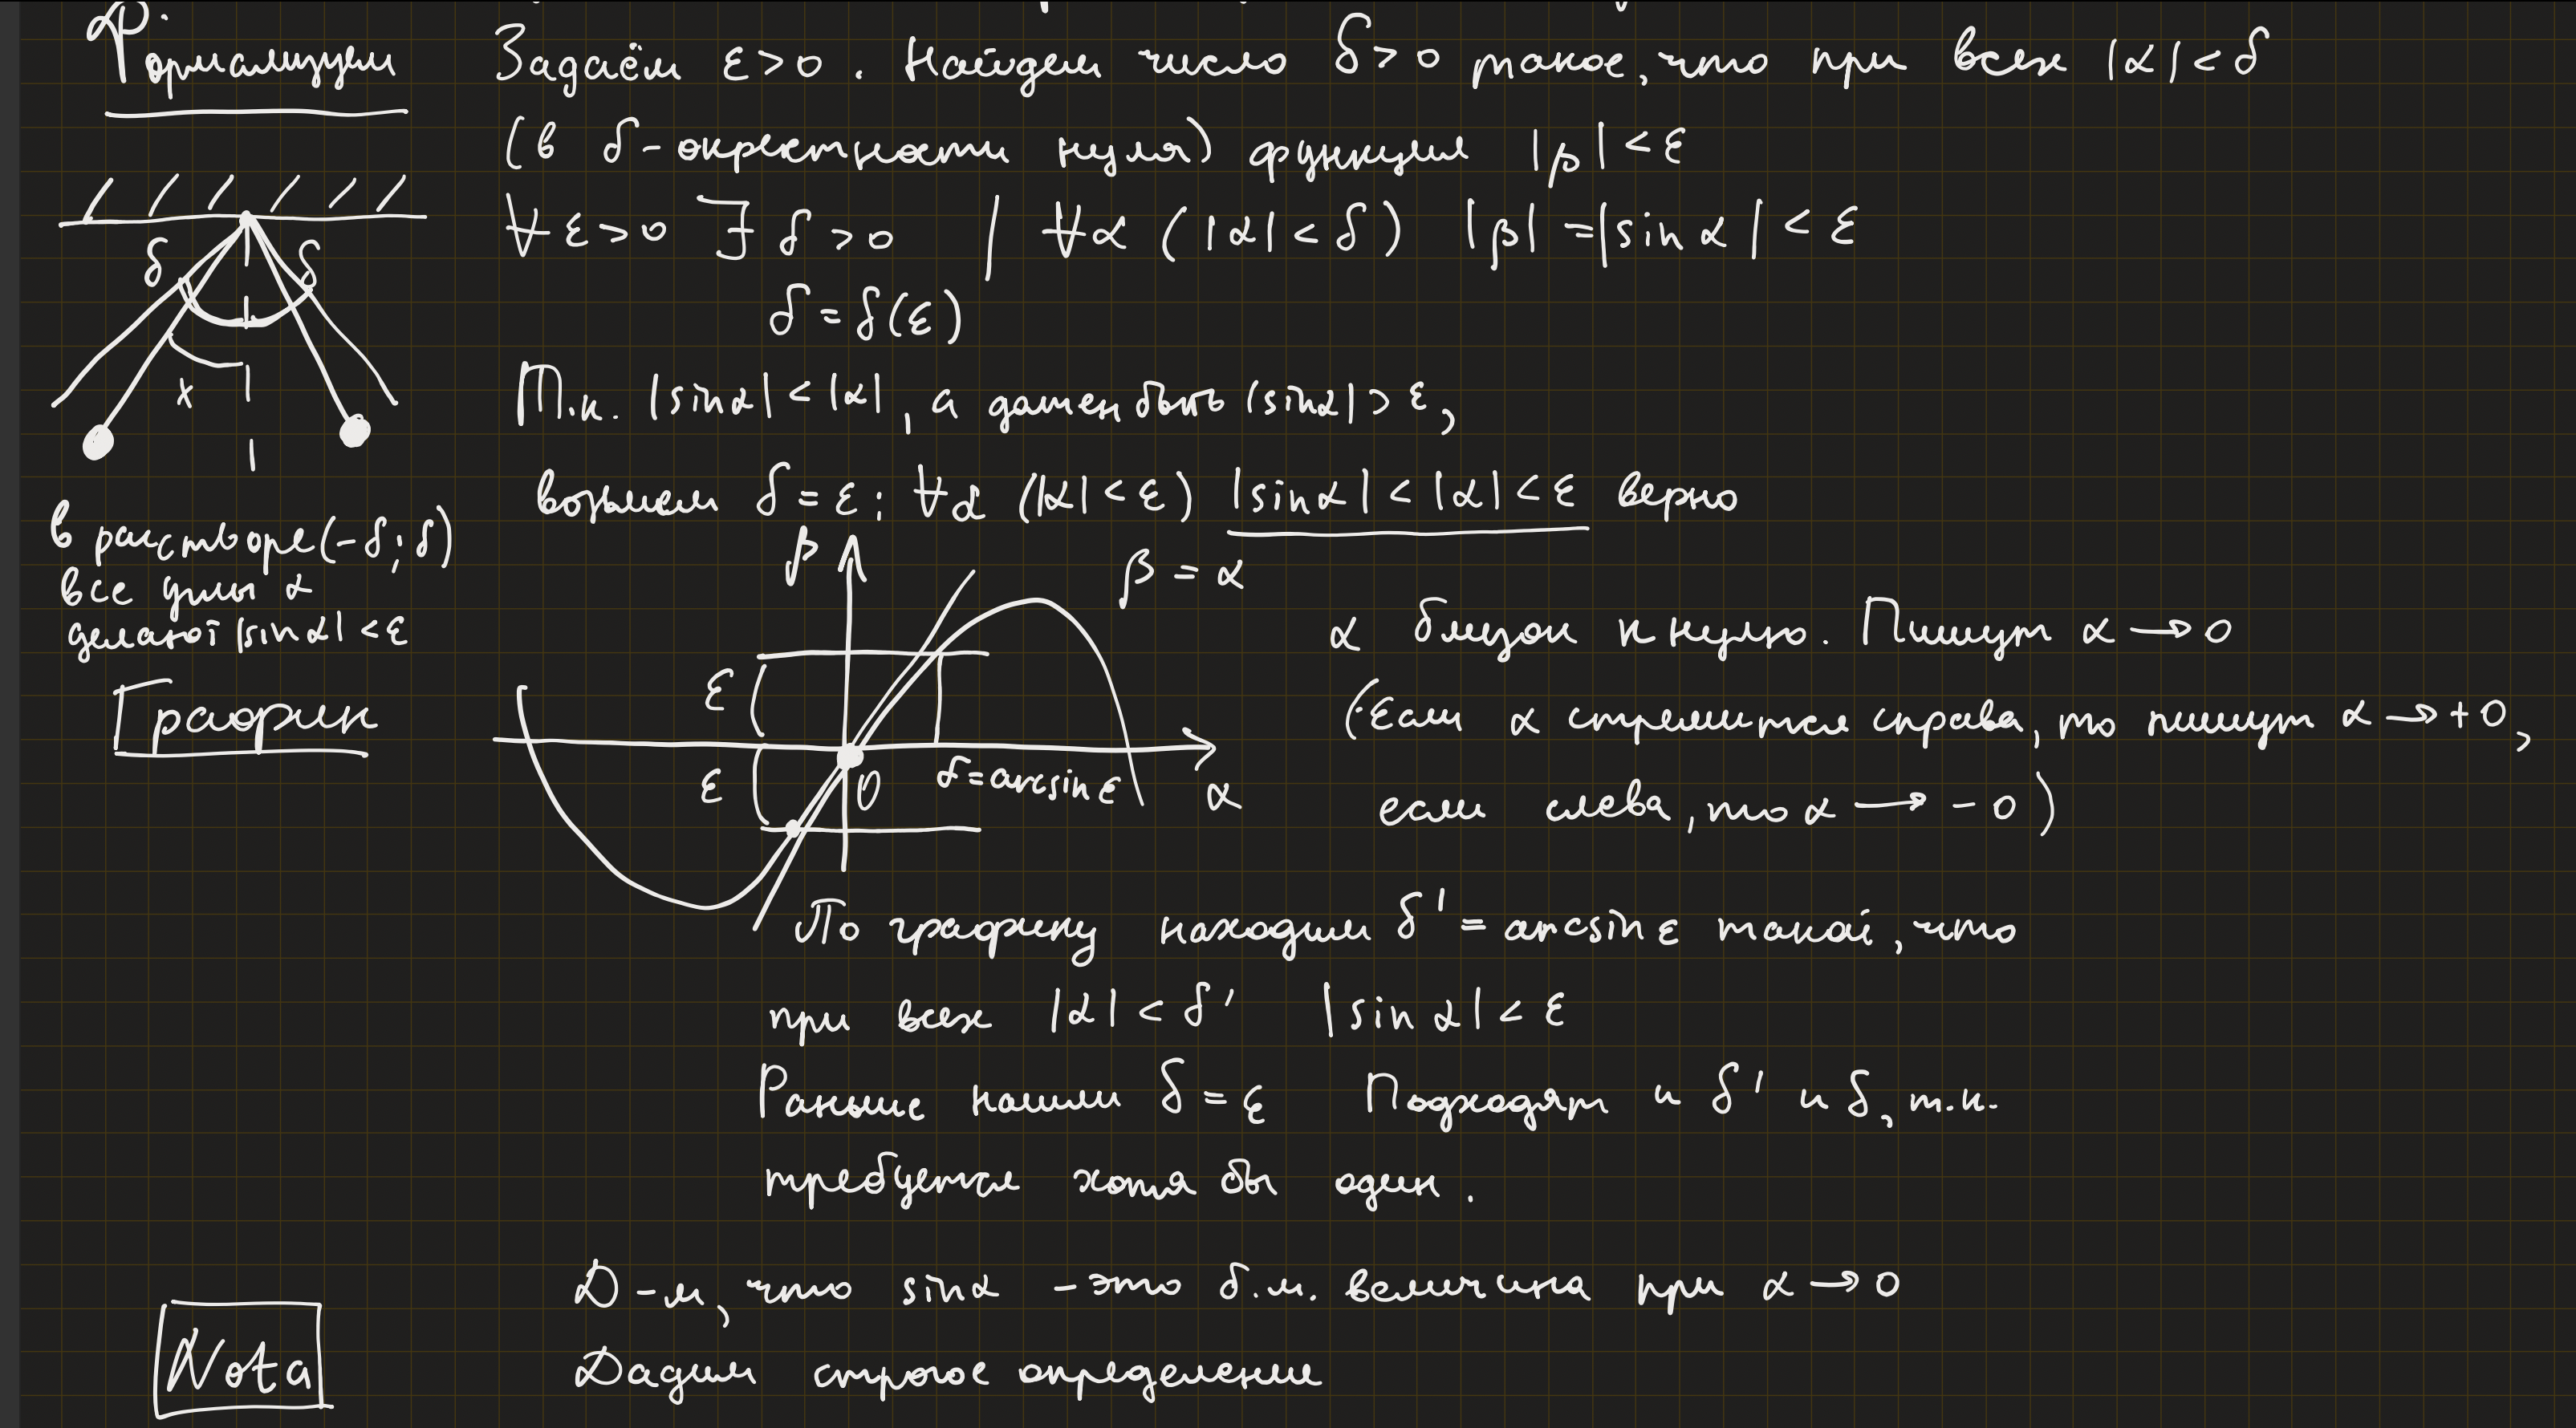 Формализуем
Задаём ε>0. Найдем число δ>0 такое, что при всех |α|<δ
(в δ-окрестности нуля) функция |β|<ε
∀ε>0 ∃ δ>0 | ∀α (|α|<δ) |β|=|sin α|<ε
δ=δ(ε)
δ δ
x
в растворе (-δ; δ)
все углы α
делают |sin α|<ε
Т.к. |sinα|<|α|, а должен быть |sinα|>ε,
возьмем δ=ε: ∀α (|α|<ε) |sinα|<|α|<ε верно
График
β
β = α
ε
ε
0
δ=arcsin ε
α
α близок к нулю. Пишут α → 0
(Если α стремится справа, то пишут α → +0,
если слева, то α → -0)
По графику находим δ' = arcsin ε такой, что
при всех |α|<δ' |sin α|<ε
Раньше нашли δ=ε Подходят и δ' и δ, т.к.
требуется хотя бы один.
Nota
Д-м, что sinα - это б.м. величина при α → 0
Дадим строгое определение